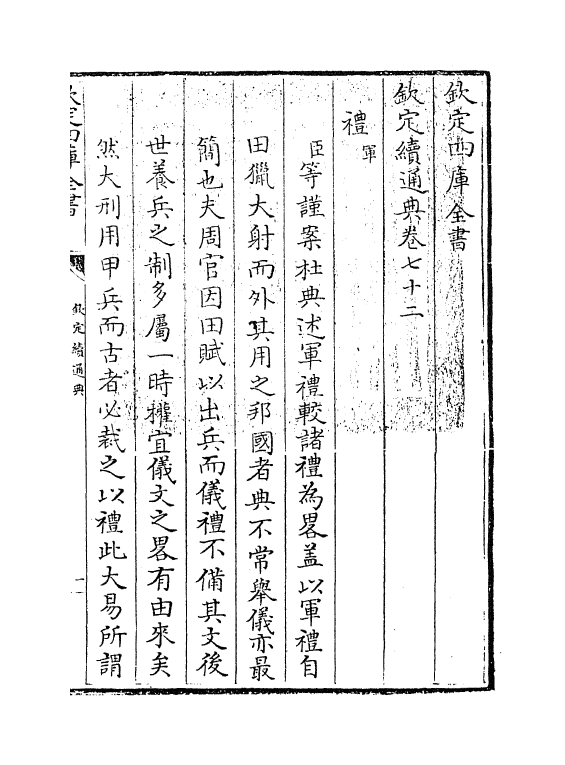 欽定四庫全書
欽定續通典卷七十二
禮 軍
臣等謹案杜典述軍禮較諸禮為畧蓋以軍禮自
田獵大射而外其用之邦國者典不常舉儀亦最
簡也夫周官因田賦以出兵而儀禮不備其文後
世養兵之制多屬一時權宜儀文之畧有由來矣
然大刑用甲兵而古者必裁之以禮此大易所謂
欽定四庫全書
欽定續通典